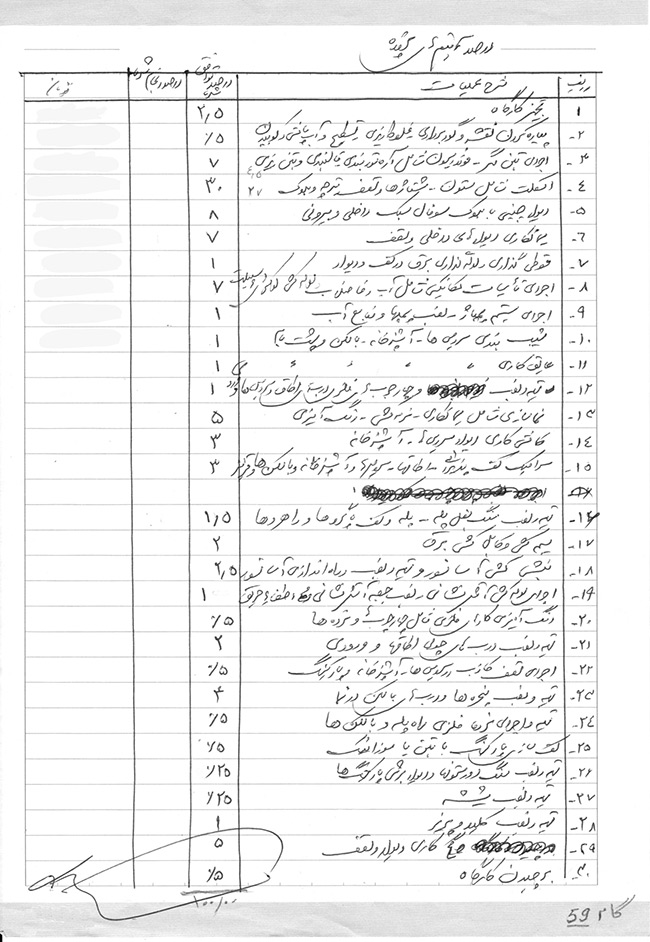 درصد آیتم های پروژه
ردیف شرح عملیات درصد توافق شده درصد انجام شده
۱ تجهیز کارگاه ۲٫۵
۲- پیاده کردن نقشه و گودبرداری غلطک ریزی تسطیح و آب پاشی و کوبیدن ٪۵
۳- اجرای بتن مگر - فونداسیون شامل آرماتوربندی قالبندی و بتن ریزی ۷
۴- اسکلت شامل ستون - شناژها و سقف تیرچه و بلوک ۲۷ ۳۰
۵- دیوار چینی با بلوک سفال سبک داخلی و بیرونی ۸
۶- گچکاری دیوارهای داخلی و سقف ۷
۷- قوطی گذاری و لوله گذاری برق در کف و دیوار ۱
۸- اجرای تأسیسات مکانیکی شامل آب و فاضلاب لوله کشی کولر و اسپیلت ۷
۹- اجرای سیستم پمپاژ - نصب پمپها و منابع آب ۱
۱۰- شیب بندی سرویس ها - آشپزخانه - بالکن و پشت بام ۱
۱۱- عایق کاری " " " " ۱
۱۲- تهیه و نصب چهارچوب های فلزی درب های اطاق و سرویس ها ۱
۱۳- نماسازی شامل گچکاری - رنگ آمیزی ۵
۱۴- کاشی کاری دیوار سرویس ها - آشپزخانه ۳
۱۵- سرامیک کف پذیرائی - اطاقها - سرویسها و آشپزخانه و بالکن ها ۳
۱۶- تهیه و نصب سنگ بغل پله - پله و کف پاگردها و راهروها ۱٫۵
۱۷- سیم کشی و کابل کشی برق ۲
۱۸- نبشی کشی آسانسور و تهیه و نصب و راه اندازی آسانسور ۲٫۵
۱۹- اجرای لوله کشی آتش نشانی و نصب جعبه آتش نشانی اطفاء حریق ۱
۲۰- رنگ آمیزی کارهای فلزی شامل چهارچوبها و نرده ها ٪۵
۲۱- تهیه و نصب درب های چوبی اطاقها و ورودی ۲
۲۲- اجرای سقف کاذب سرویس ها - آشپزخانه و پارکینگ ٪۵
۲۳- تهیه و نصب پنجره ها و درب های بالکن و نما ۴
۲۴- تهیه و اجرای نرده فلزی راه پله و بالکن ها ٪۵
۲۵- کف سازی پارکینگ با بتن یا موزائیک ٪۵
۲۶- تهیه و نصب سنگ دور ستونها و دیوار پارکینگ ها ٪۲۵
۲۷- تهیه و نصب شیشه ٪۲۵
۲۸- تهیه و نصب کلید و پریز ۱
۲۹- گچ کاری دیوار و سقف ۵
۳۰- برچیدن کارگاه ٪۵
۱۰۰/۰۰
گام 59